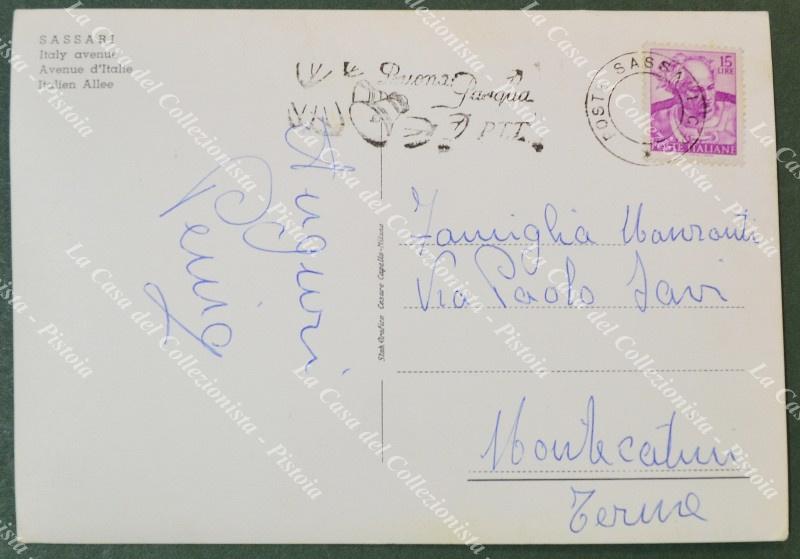 SASSARI
Italy avenue
Avenue d'Italie
Italien Allee
Buona
Pasqua
PTT
POSTE SASSARI
15
LIRE
POSTE ITALIANE
Auguri
Famiglia
Via Paolo Savi
Montecatini
Terme
Stab. Grafico Cesare Capello-Milano
La Casa del Collezionista - Pistoia